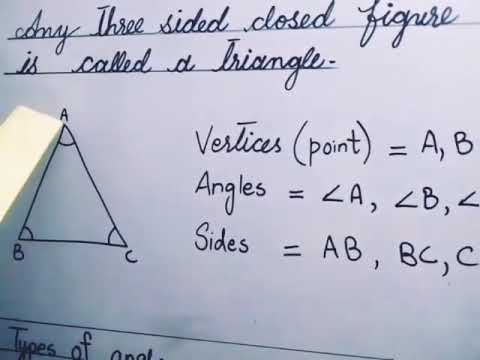 Any Three sided closed figure
is called a Triangle.
A
Vertices (point) = A, B
Angles = ∠A, ∠B, ∠
Sides = AB, BC, C
B
C
Types of